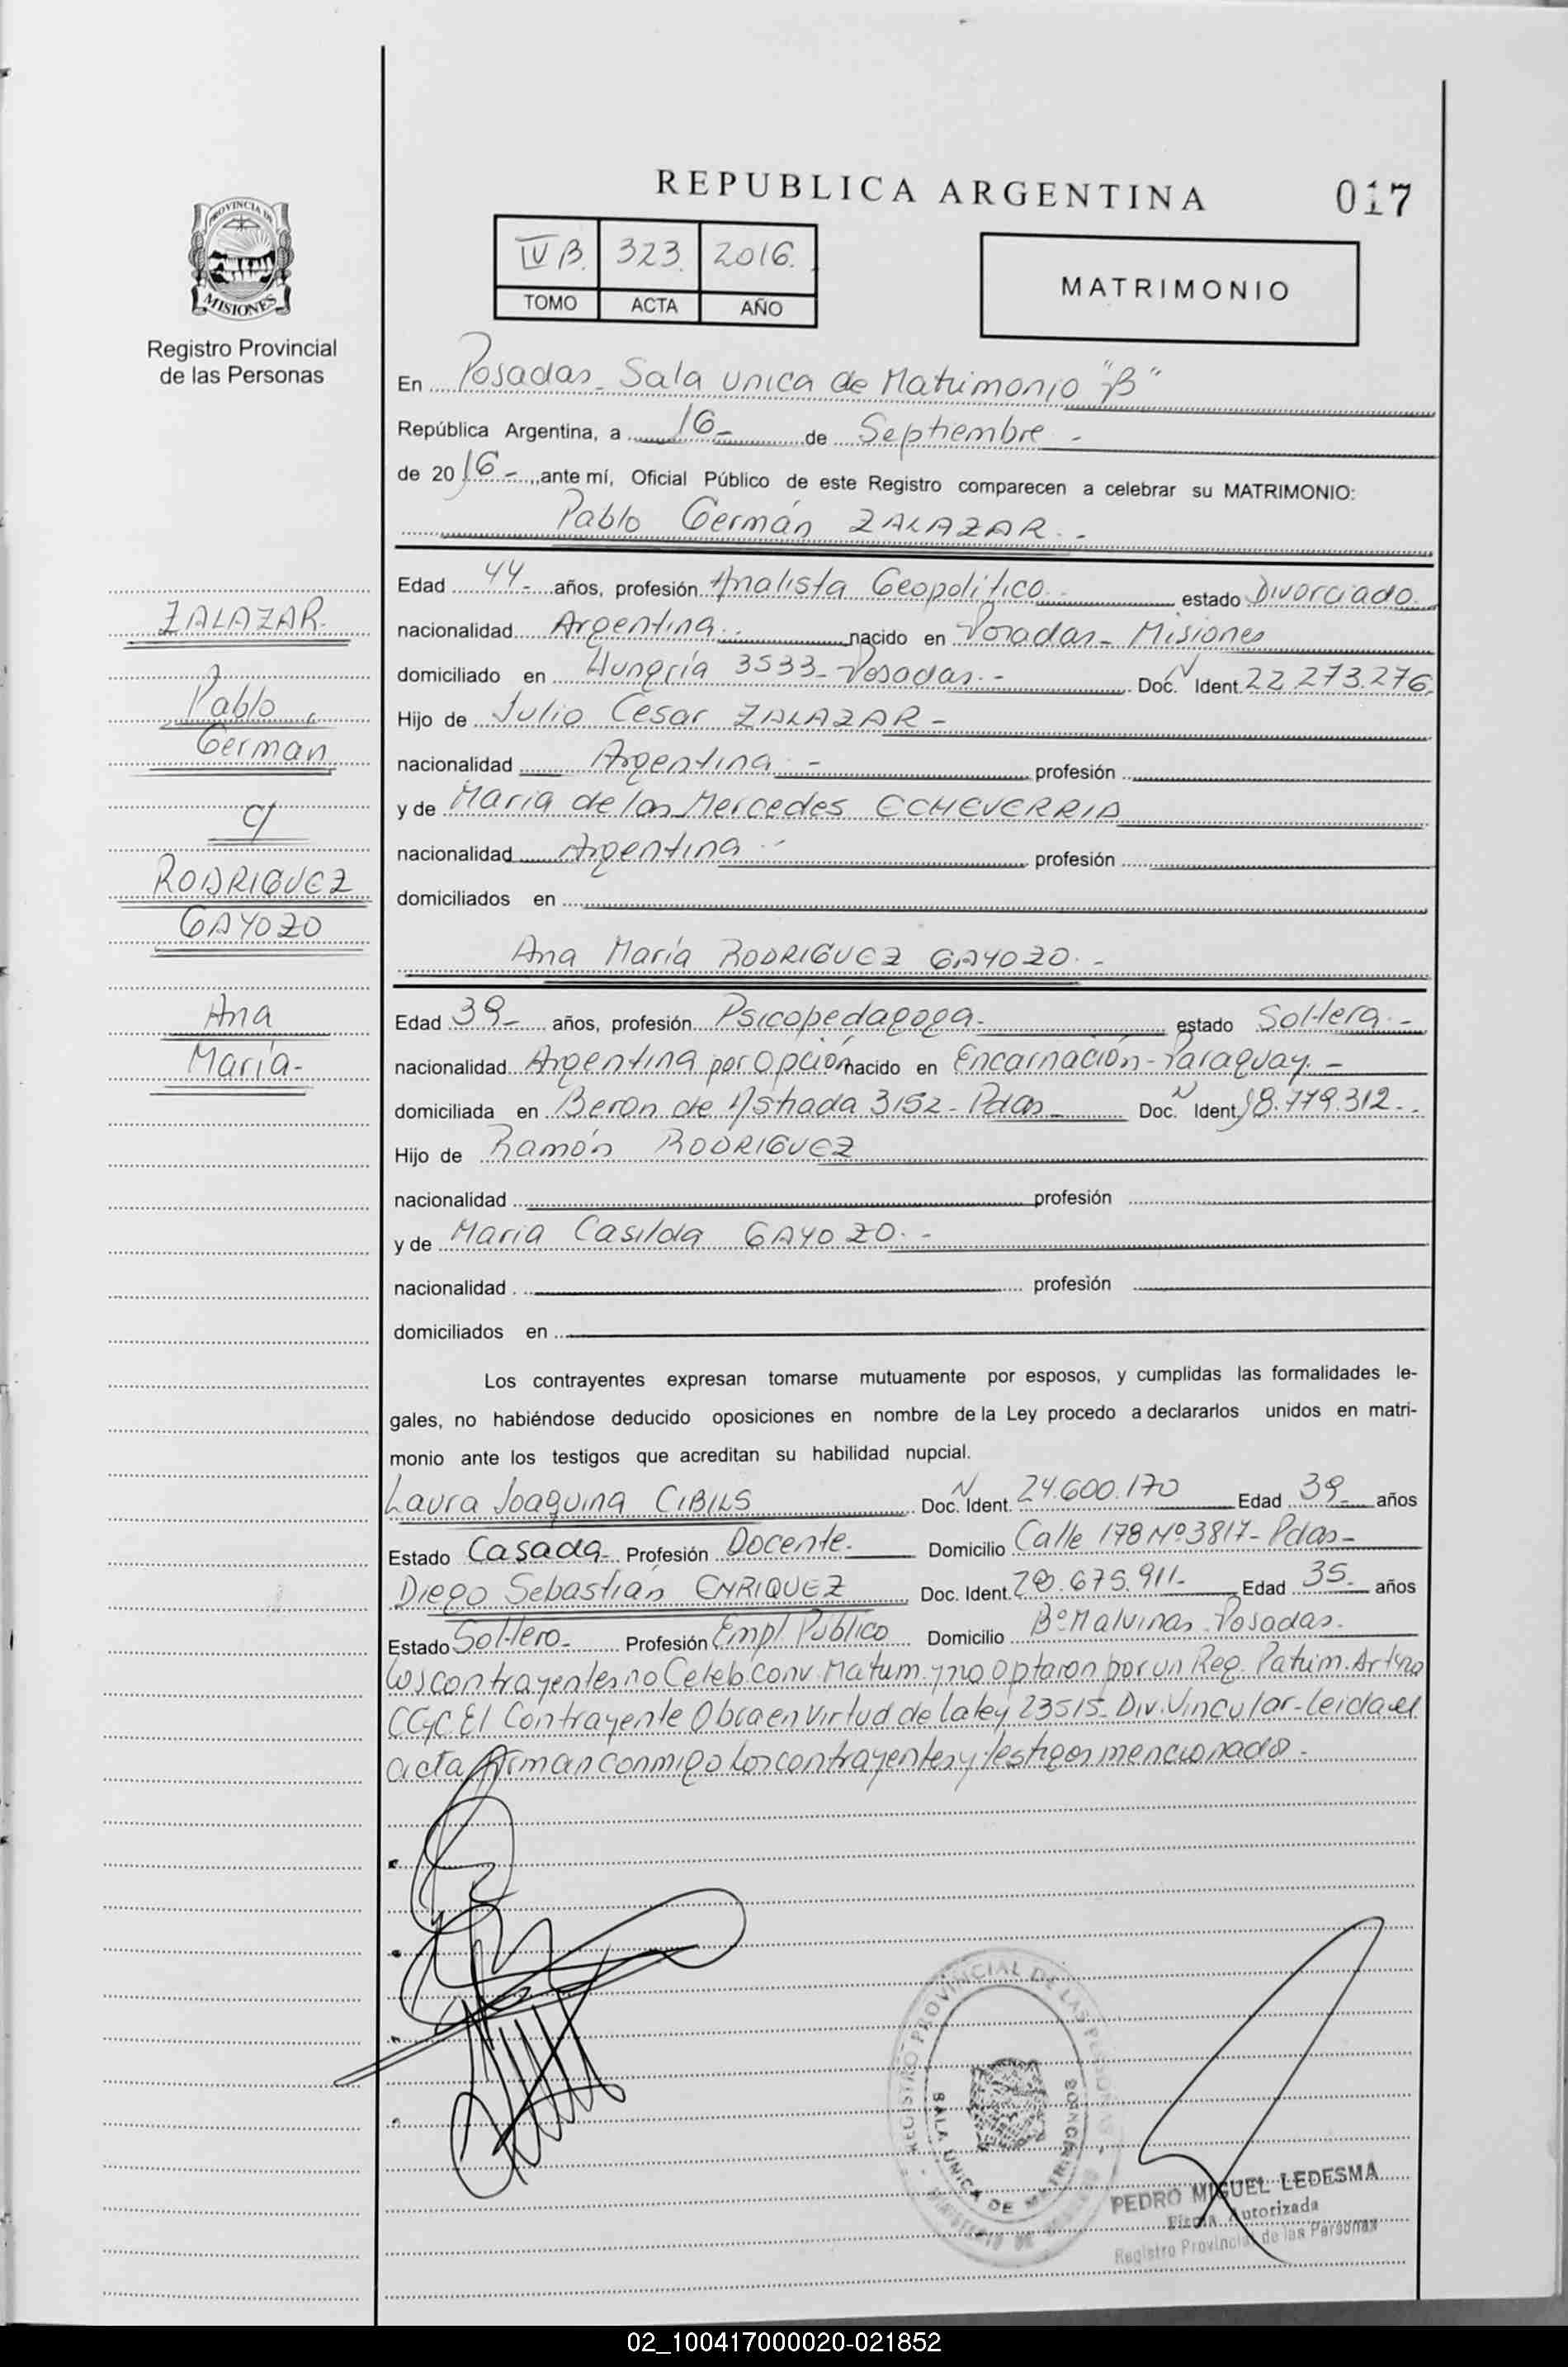 REPUBLICA ARGENTINA
017
PROVINCIA DE
MISIONES
Registro Provincial
de las Personas
IV B. 323. 2016.
TOMO ACTA AÑO
MATRIMONIO
En Posadas - Sala unica de Matrimonio "B"
República Argentina, a 16 - de Septiembre -
de 2016 - ante mí, Oficial Público de este Registro comparecen a celebrar su MATRIMONIO:
Pablo Germán ZALAZAR. -
Edad 44 - años, profesión Analista Geopolítico. - estado Divorciado.
nacionalidad Argentina. - nacido en Posadas - Misiones
domiciliado en Hungría 3533 - Posadas. - Doc. N Ident. 22.273.276.
Hijo de Julio Cesar ZALAZAR -
nacionalidad Argentina. - profesión
y de Maria de las Mercedes ECHEVERRIA
nacionalidad Argentina. - profesión
domiciliados en
Ana María RODRIGUEZ GAYOZO. -
Edad 39 - años, profesión Psicopedagoga - estado Soltera. -
nacionalidad Argentina por Opción nacido en Encarnación - Paraguay. -
domiciliada en Beron de Astrada 3152 - Pdas - Doc. N Ident. 18.779.312. -
Hijo de Ramón RODRIGUEZ
nacionalidad profesión
y de Maria Casilda GAYOZO. -
nacionalidad profesión
domiciliados en
Los contrayentes expresan tomarse mutuamente por esposos, y cumplidas las formalidades le-
gales, no habiéndose deducido oposiciones en nombre de la Ley procedo a declararlos unidos en matri-
monio ante los testigos que acreditan su habilidad nupcial.
Laura Joaquina CIBILS Doc. N Ident. 24.600.170 Edad 39 - años
Estado Casada - Profesión Docente. Domicilio Calle 178 Nº 3817 - Pdas -
Diego Sebastián ENRIQUEZ Doc. Ident. 28.675.911 - Edad 35 - años
Estado Soltero - Profesión Empl. Publico Domicilio Bº Malvinas - Posadas -
Los contrayentes no Celeb Conv. Matrim. y no Optaron por un Reg. Patrim.
CCyC. El Contrayente Obra en Virtud de la ley 23515 - Div. Vincular - Leida el
acta firman conmigo los contrayentes y testigos mencionado. -
ZALAZAR.
Pablo
German
c/
RODRIGUEZ
GAYOZO
Ana
María -
REGISTRO PROVINCIAL DE LAS PERSONAS
SALA UNICA DE MATRIMONIOS
PEDRO MIGUEL LEDESMA
Firma Autorizada
Registro Provincial de las Personas
02_100417000020-021852